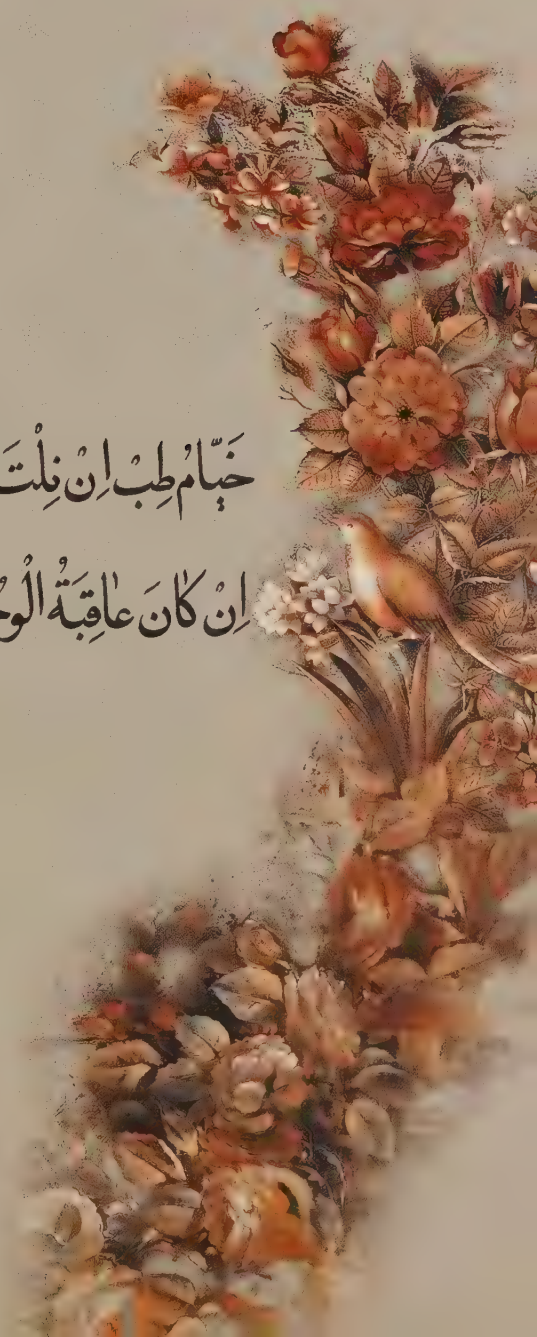 خَيّامُ طِبْ اِنْ نِلْتَ
اِنْ كٰانَ عٰاقِبَةُ